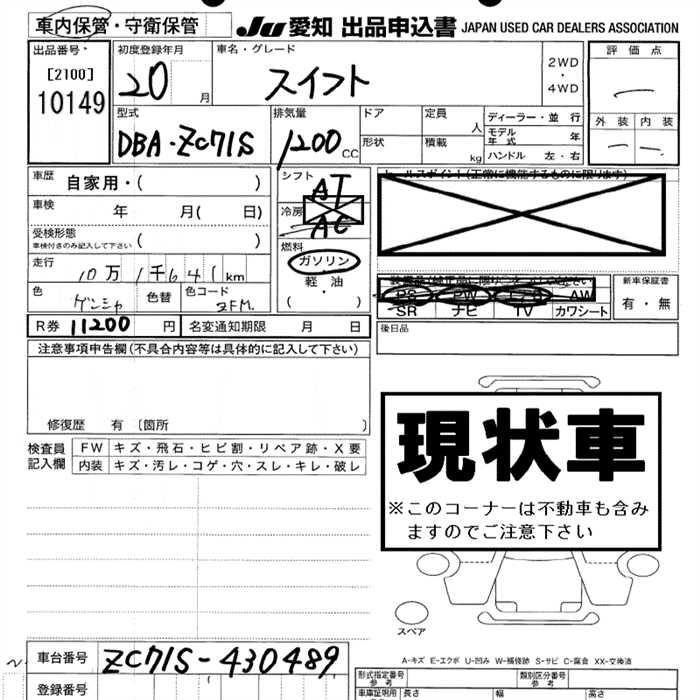 車内保管・守衛保管
JU 愛知 出品申込書 JAPAN USED CAR DEALERS ASSOCIATION
出品番号 初度登録年月 車名・グレード 評価点
[2100]
10149
20 月 スイフト 2WD・4WD
型式 排気量 ドア 定員 人 ディーラー・並行 外装 内装
DBA・ZC71S 1200 CC 形状 積載 kg モデル年式 年
ハンドル 左・右
車歴 自家用・( ) シフト AT
車検 年 月( 日) 冷房 AC
受検形態 ( )
車検付きのみ記入して下さい
燃料 ガソリン
軽・油
( ・ )
走行 10万1千641km
色 ゲンシャ 色替 色コード ZFM.
新車保証書
有・無
PS PW AW
SR ナビ TV カワシート
R券 11200 円 名変通知期限 月 日
後日品
注意事項申告欄(不具合内容等は具体的に記入して下さい)
修復歴 有 〔箇所 〕
検査員記入欄 FW キズ・飛石・ヒビ割・リペア跡・X要
内装 キズ・汚レ・コゲ・穴・スレ・キレ・破レ
現状車
※このコーナーは不動車も含み
ますのでご注意下さい
スペア
A-キズ E-エクボ U-凹み W-補修跡 S-サビ C-腐食 XX-交換済
車台番号 ZC71S-430489
登録番号
形式指定番号 参考 類別区分番号 参考
車庫証明用 長さ 幅 高さ